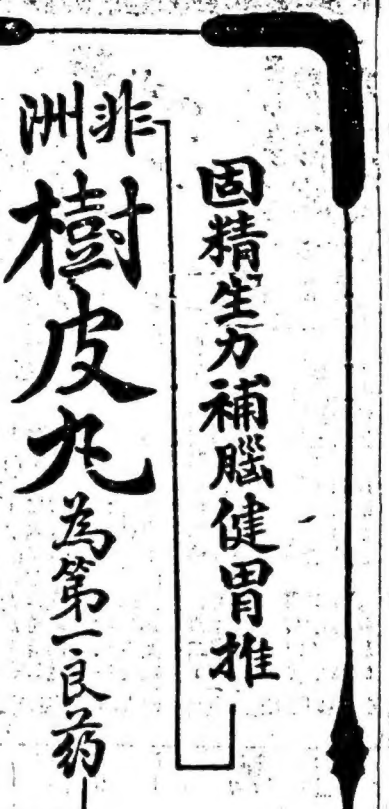 固精生力補腦健胃推
非洲
樹皮丸為第一良药